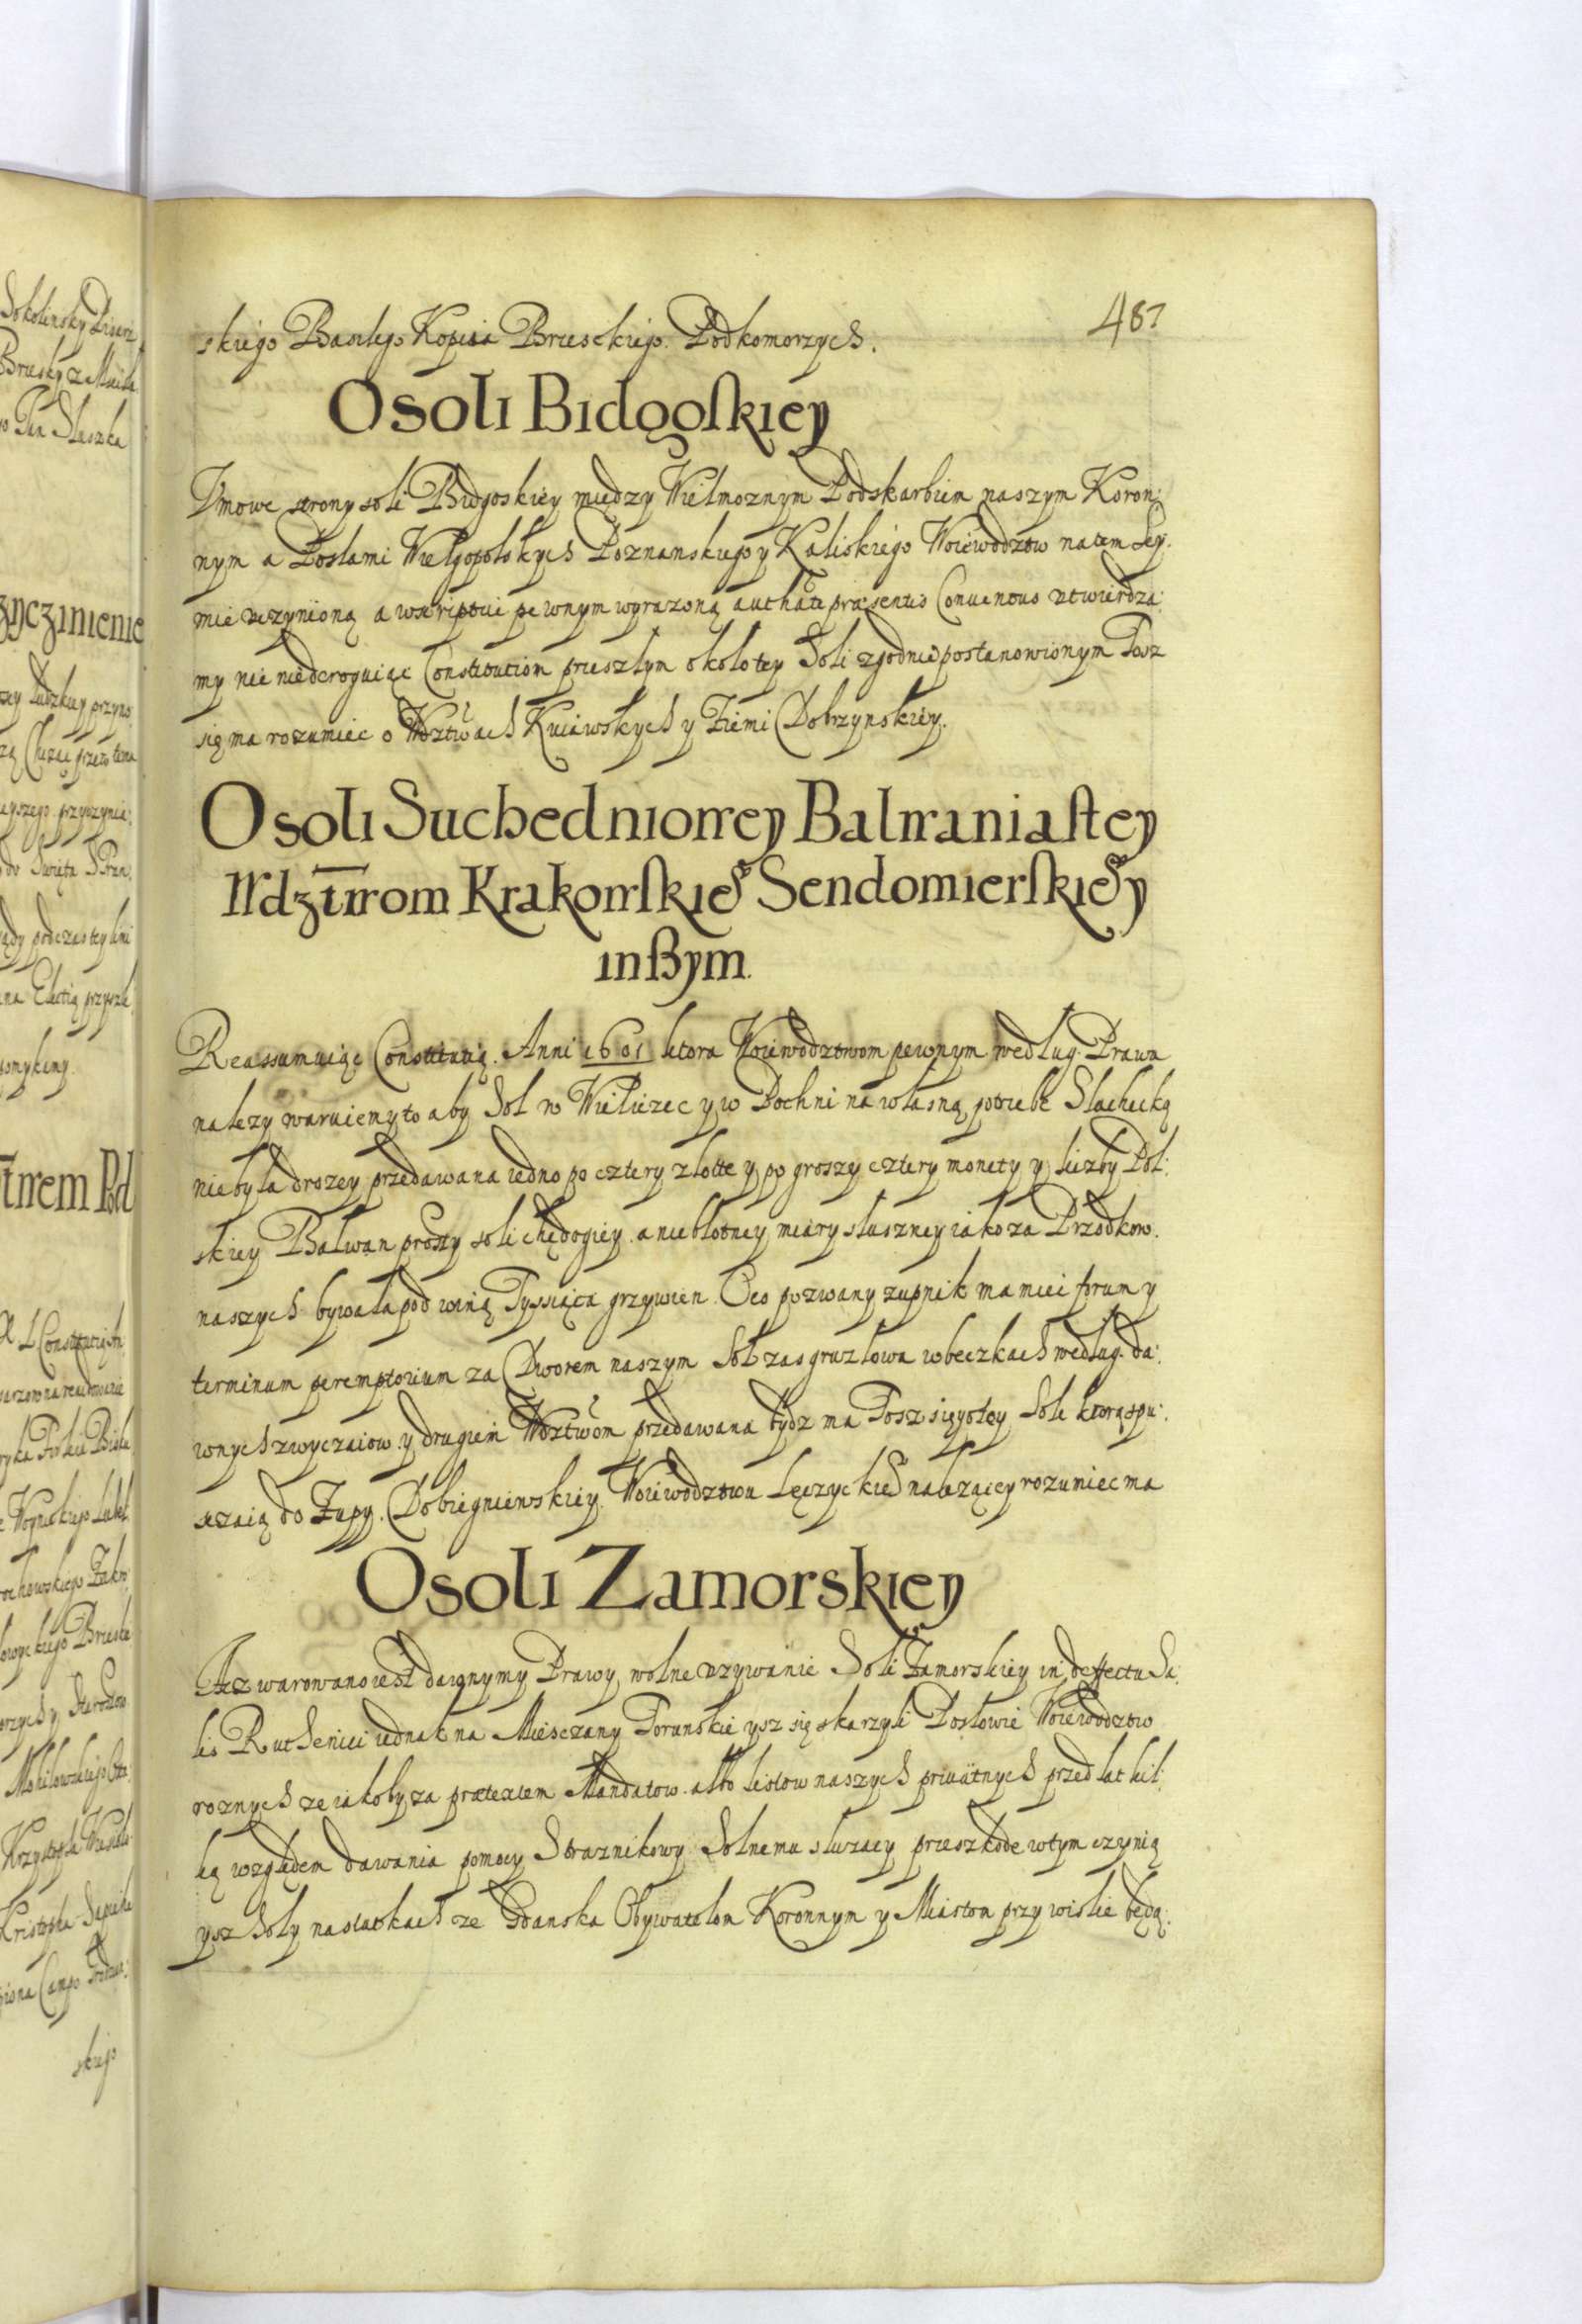 487
skiego Basilego Kopcia Brzesckiego. Podkomorzych.
O soli Bidgoskiey
Vmowe strony soli Bidgoskiey między Wielmoznym Podskarbiem naszym Koron:
nym a Posłami Wielgopolskych Poznanskiego y Kaliskiego Woiewodztw natem Sey:
mie uczynioną a wscriptcie pewnym wyrazoną authate præsentis Conuentus utwierdza:
my nie niederoguiąc Constitutiom przeszlym około tey Soli zgodnie postanowionym Tosz
się ma rozumiec o Wdztwach Kuiawskych y Ziemi Dobrzynskiey.
O soli Suchedniowey Bałwaniastey
Wdztwom Krakowskie° Sendomierskie° y
inßym.
Reassumuiąc Constitutią. Anni 1601 ktora Woiewodztwom pewnym według Prawa
nalezy waruiemy to aby Sol w Wieliczce y w Bochni na własną potrzebe Slachecką
nie była drozey przedawana iedno po cztery złotte y po groszy cztery monety y liczby Pol:
skiey Bałwan prosty soli chędogiey a niebłotney miary słuszney iako za Przodkow.
naszych bywała pod winą Tyssiąca grzywien. Oco pozwany zupnik ma miec forum y
terminum peremptorium za Dworem naszym Sol zas gruzłowa w beczkach według da:
wnych zwyczaiow y drugiem Wdztwom przedawana bydz ma Tosz się y o tey Sole ktorą spu:
sczaią do Zupy Dobiegniewskiey. Woiewodztwu Lęczyckie° nalezącey rozumiec ma
O soli Zamorskiey
Acz warowano iest dawnymy Prawy wolne uzywanie Soli Zamorskiey in deffectu Sa:
lis Ruthenici iednak na Miesczany Torunskie ysz się skarzyli Posłowie Woiewodztw
roznych ze iakoby za prætextem Mandatow albo listow naszych priuatnych przed lat kil:
ką względem dawania pomocy Straznikowy Solnemu słuzacy przeszkode w tym czynią
ysz Soly na statkach ze Gdanska Obywatelom Koronnym y Miastom przy wislie będą: